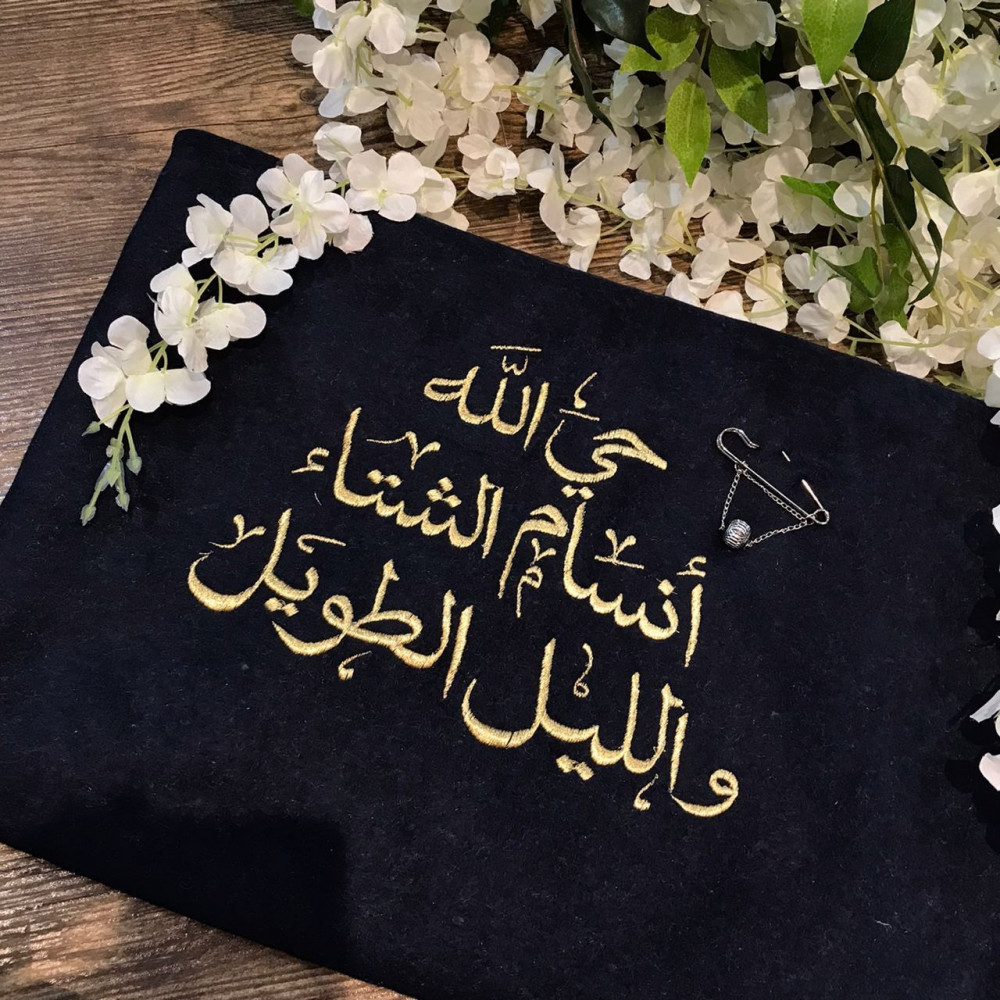 حيّ اللّٰه
أنسام الشتاء
والليل الطويل